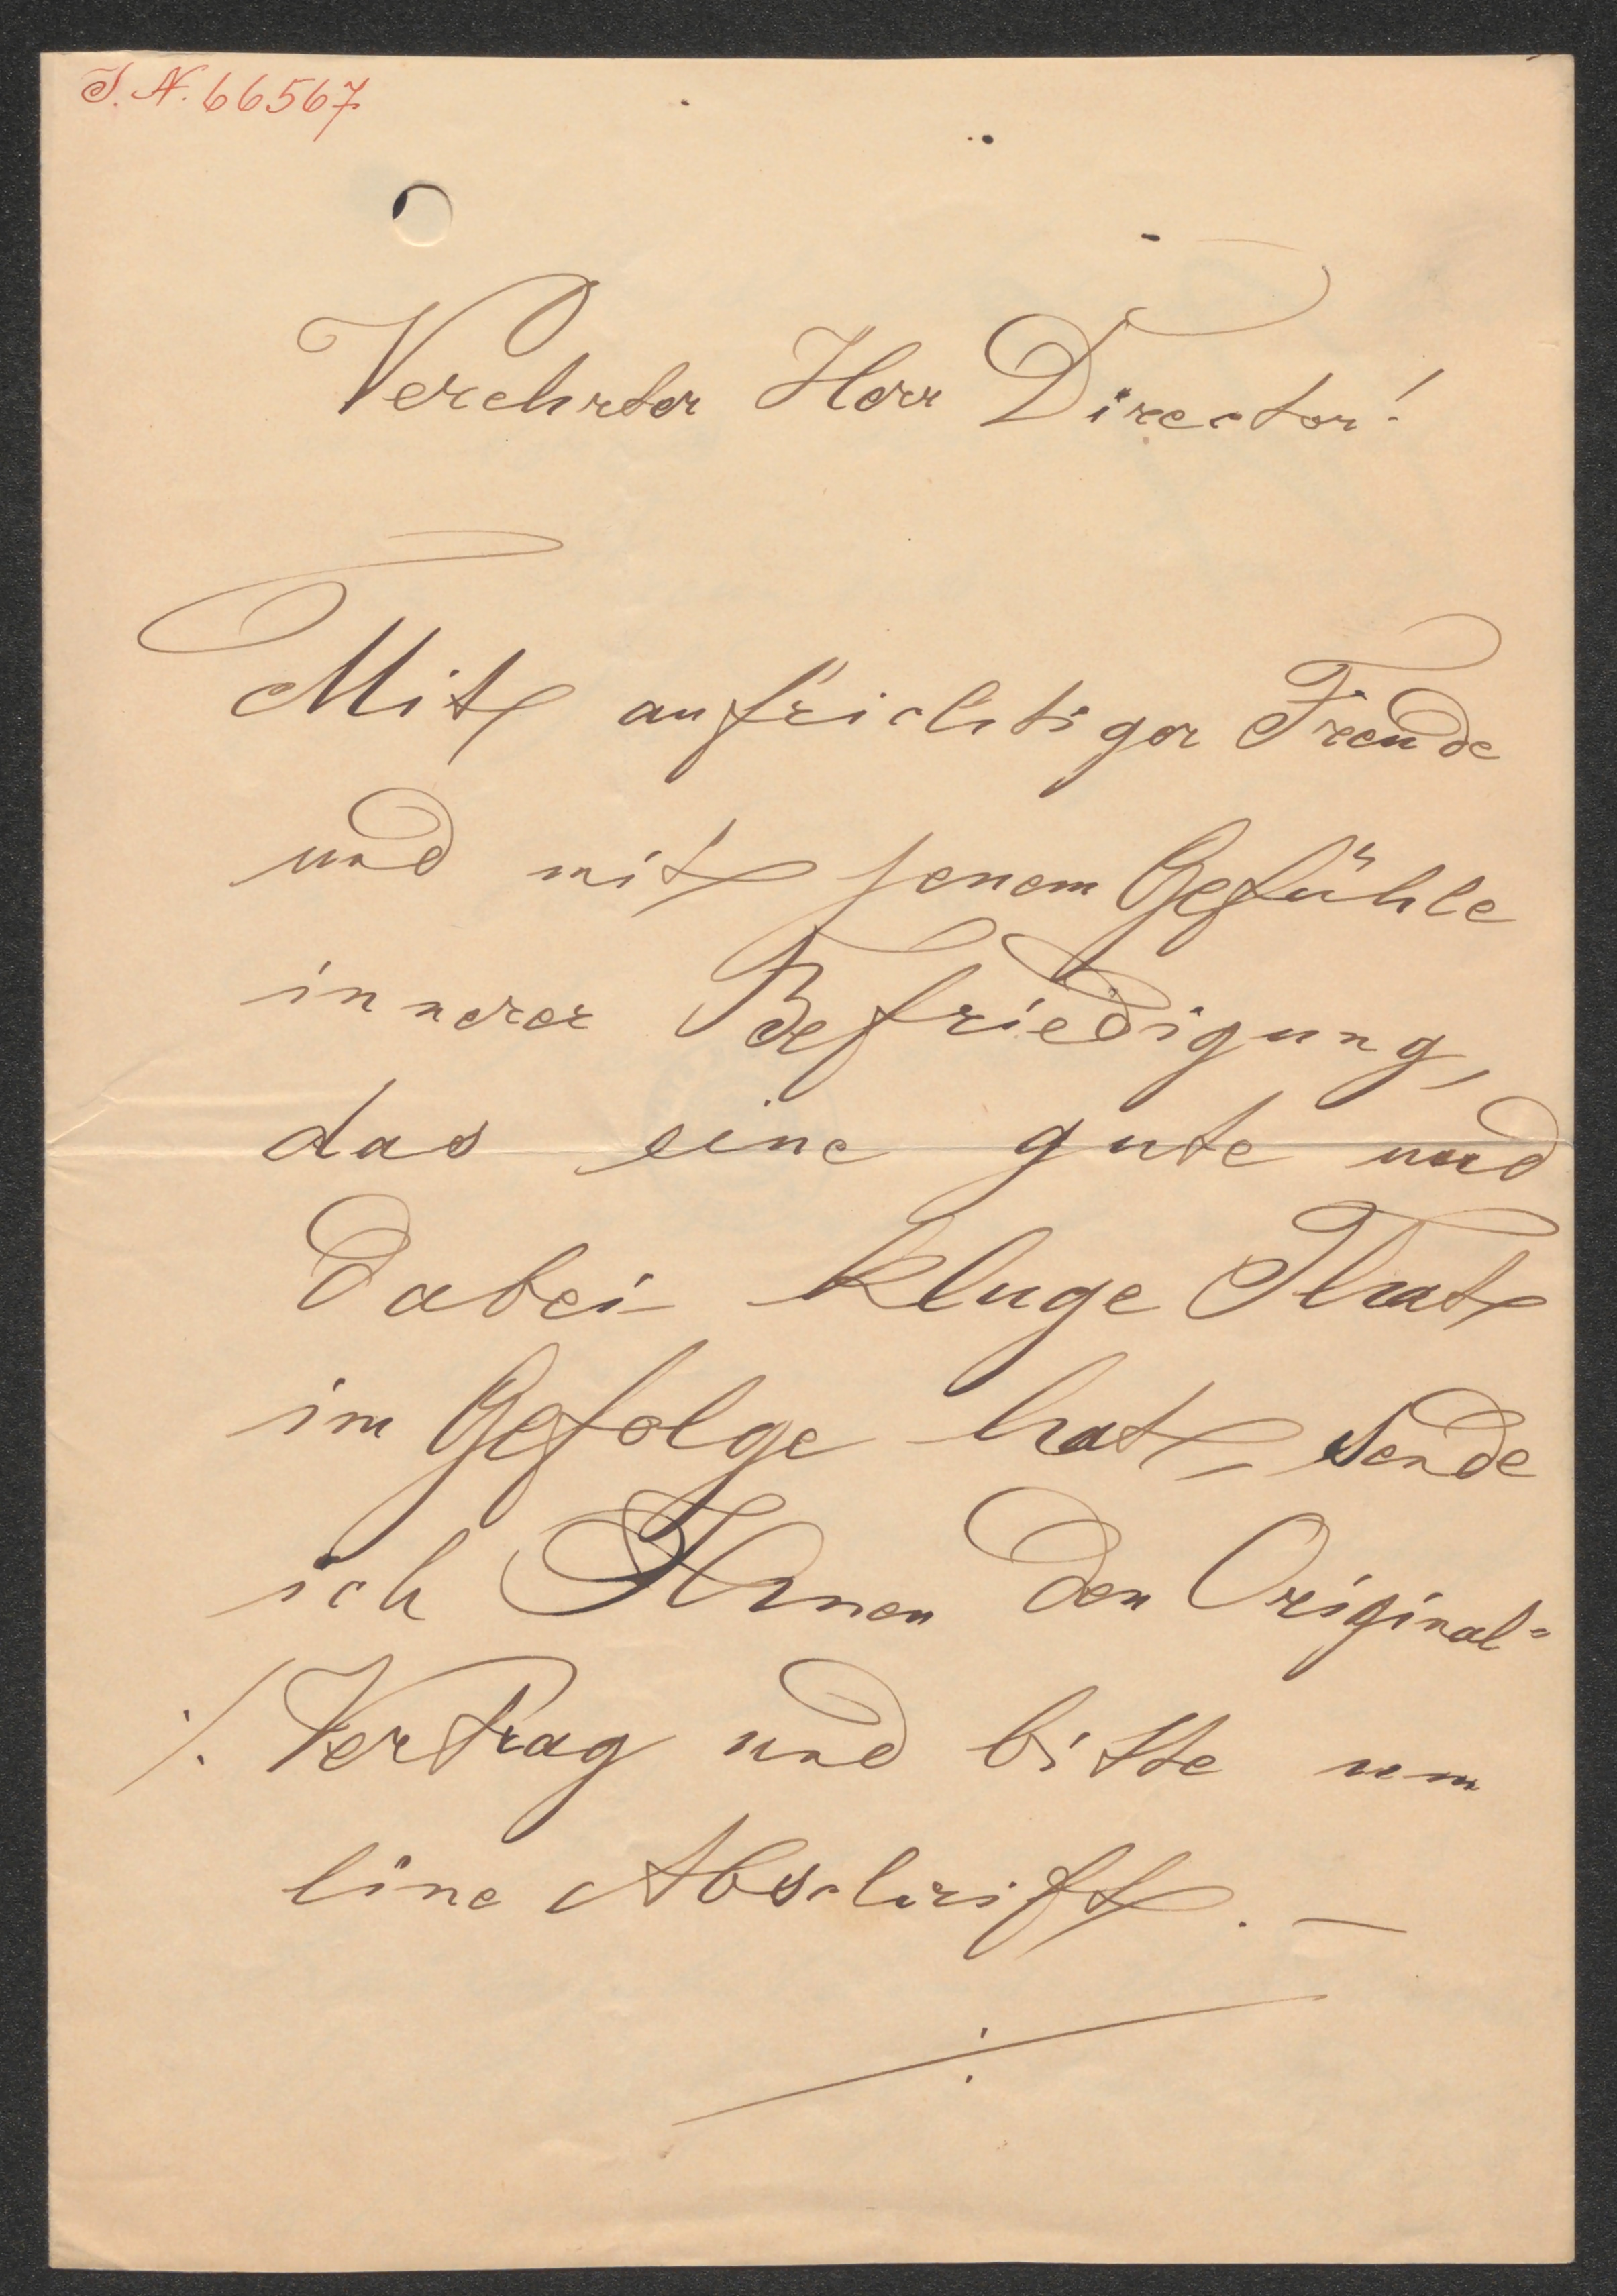 I. N. 66567
Verehrter Herr Director!
Mit aufrichtiger Freude
und mit jenem Gefühle
innerer Befriedigung,
das eine gute und
dabei kluge That
im Gefolge hat, sende
ich Ihnen den Original-
./. Vertrag und bitte um
eine Abschrift. —
./.